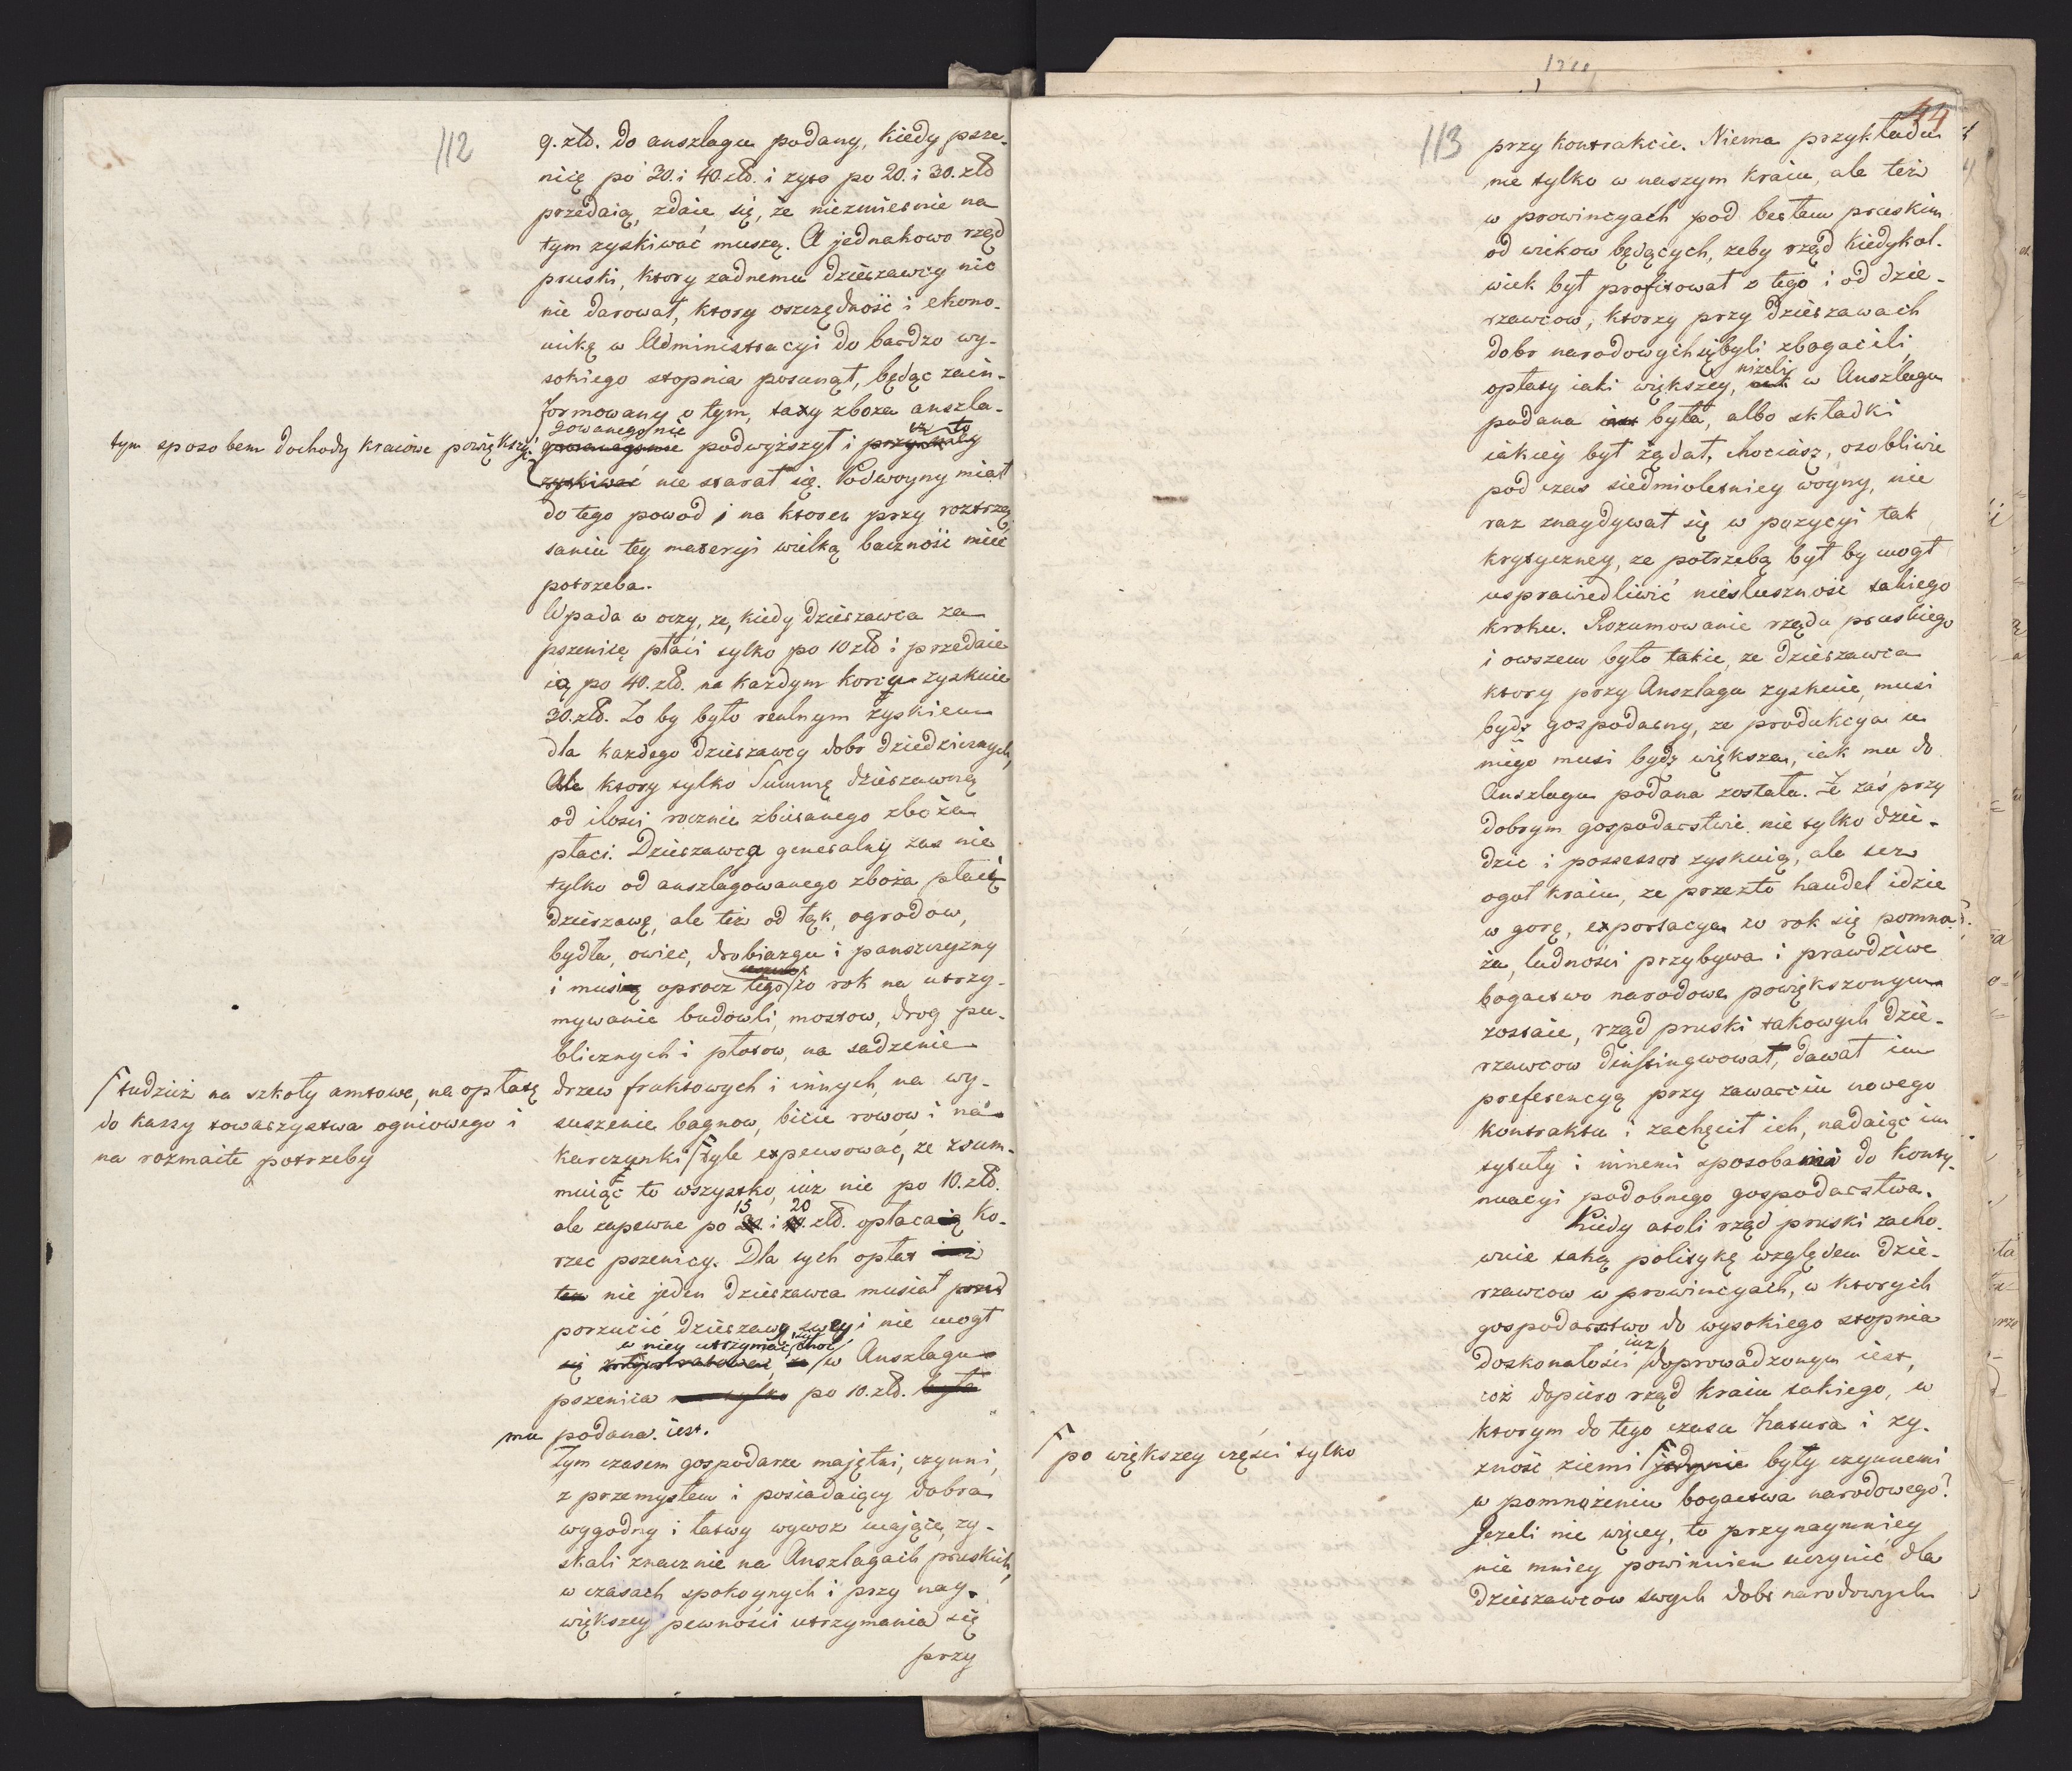 112
9. złd. do anszlagu podany, kiedy psze-
nicę po 30. i 40. złd. i żyto po 20. i 30. złd
przedaią, zdaie się, że niezmiernie na
tym zyskiwać muszą. A jednakowo rząd
pruski, ktory zadnemu dzierzawcy nic
nie darował, ktory oszczędność i ekono-
mikę w Administracyi do bardzo wy-
sokiego stopnia posunął, będąc zain-
formowany o tym, taxy zboza anszla-
gowanego nie podwyższył i
tym sposobem dochody kraiowe powiększyć
zyskiwać nie starał się. Podwoyny miał
do tego powod i na ktoren przy roztrzą
saniu tey materyi wielką baczność mieć
potrzeba.
Wpada w oczy, ze, kiedy dzierzawca za
pszenicę płaci tylko po 10 złd i przedaie
ią po 40. złd. na kazdym korcu zyskuie
30. złd. To by było realnym zyskiem
dla kazdego dzierzawcy dobr dziedzicznych,
Ale ktory tylko Summę dzierzawną
od ilosci rocznie zbieranego zboża
płaci. Dzierzawca generalny zas nie
tylko od anszlagowanego zboża płaci
dzierzawę, ale też od łąk, ogrodow,
bydła, owiec, drobiazgu i panszczyzny
i musi oprocz tego co rok na utrzy-
mywanie budowli, mostow, drog pu-
blicznych i płotow, na sadzenie
drzew fruktowych i innych, na wy-
suszenie bagnow, bicie rowow i na
karczunki tyle expensować, ze zsum-
tudzież na szkoły amtowe, na opłatę
do kassy towarzystwa ogniowego i
na rozmaite potrzeby
muiąc to wszystko, iuz nie po 10. złd.
ale zapewne po 15 i 20 złd. opłaca ko-
rzec pszenicy. Dla tych opłat
nie jeden dzierzawca musiał
porzucić dzierzawę swey i nie mogł
w niey utrzymać choć w Anszlagu
pszenica po 10. złd. była
mu podana iest.
Tym czasem gospodarze majętni, czynni,
z przemysłem i posiadaiący dobra
wygodny i łatwy wywoz mające, zy-
skali znacznie na Anszlagach pruskich,
w czasach spokoynych i przy nay-
większey pewności utrzymania się
przy
44
113
przy kontrakcie. Niema przykładu
nie tylko w naszym kraiu, ale też
w prowincyach pod berłem pruskim
od wiekow będących, zeby rząd kiedykol-
wiek był profitował z tego i od dzie-
rzawcow, ktorzy przy dzierzawach
dobr narodowych się byli zbogacili,
opłaty iaki większey, niżeli w Anszlagu
podana była, albo składki
iakiey był żądał, chociasz, osobliwie
pod czas siedmioletniey woyny, nie
raz znaydywał się w pozycyi tak
krytyczney, ze potrzebą był by mogł
usprawiedliwić niesłuszność takiego
kroku. Rozumowanie rządu pruskiego
i owszem było takie, ze dzierzawca
ktory przy Anszlagu zyskuie, musi
bydz gospodarny, ze produkcya u
niego musi bydz większa, iak mu do
Anszlagu podana została. Ze zaś przy
dobrym gospodarstwie nie tylko dzie-
dzic i possessor zyskuią, ale tez
ogoł kraiu, ze przezto handel idzie
w gorę, exportacya co rok się pomna-
ża, ludności przybywa i prawdziwe
bogactwo narodowe powiększonym
zostaie, rząd pruski takowych dzie-
rzawcow distingwował, dawał im
preferencyą przy zawarciu nowego
kontraktu i zachęcił ich, nadaiąc im
tytuły i innemi sposobami do konty-
nuacyi podobnego gospodarstwa.
Kiedy atoli rząd pruski zacho-
wuie taką politykę względem dzie-
rzawcow w prowincyach, w ktorych
gospodarstwo do wysokiego stopnia
doskonałości iuz doprowadzonym iest,
coż dopiero rząd kraiu takiego, w
ktorym do tego czasu Natura i ży-
zność ziemi jedynie były czynnemi
po większey części tylko
w pomnożeniu bogactwa narodowego?
Jezeli nie więcey, to przynaymniey
nie mniey powinnien uczynić dla
dzierzawcow swych dobr narodowych